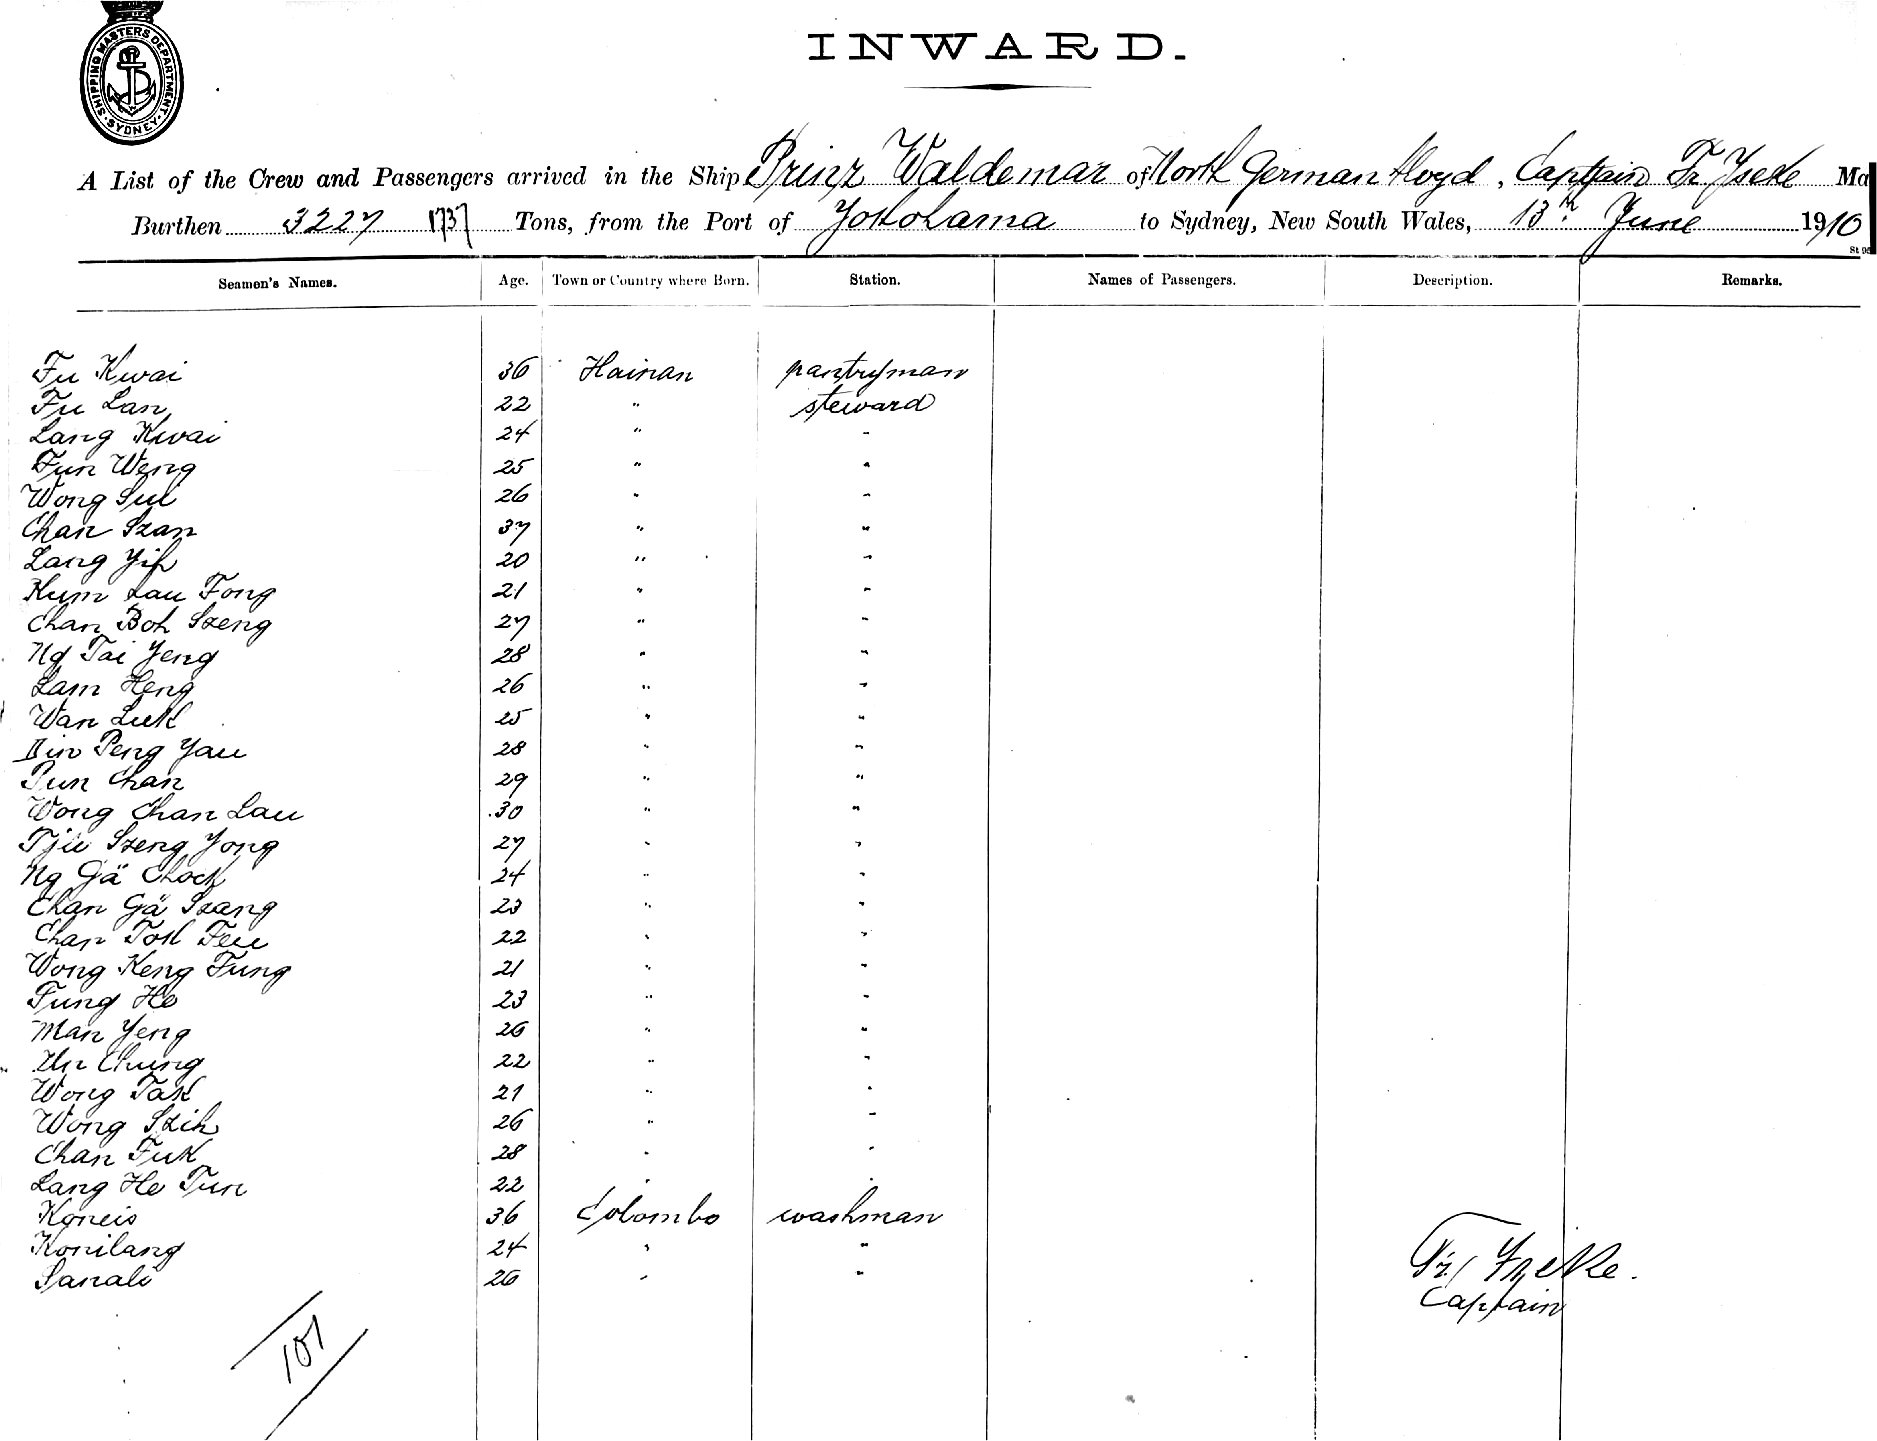 SHIPPING MASTERS DEPARTMENT · SYDNEY ·
INWARD.
A List of the Crew and Passengers arrived in the Ship Prinz Waldemar of North German Lloyd, Captain Fr. Iseke Ma
Burthen 3227 1737 Tons, from the Port of Yokohama to Sydney, New South Wales, 13th June 1910
Seamen's Names. Age. Town or Country where Born. Station. Names of Passengers. Description. Remarks.
Fu Kwai 36 Hainan pantryman
Fu Lan 22 " steward
Lang Kwai 24 " "
Fun Weng 25 " "
Wong Sui 26 " "
Chan Szan 37 " "
Lang Yih 20 " "
Kum Lau Fong 21 " "
Chan Boh Szeng 27 " "
Ng Tai Yeng 28 " "
Lam Heng 26 " "
Wan Luk 25 " "
Peng Yau 28 " "
Pun Chan 29 " "
Wong Chan Lau 30 " "
Tjiu Szeng Yong 27 " "
Ng Gä Chock 24 " "
Chan Gä Szang 23 " "
Chan Tok Feu 22 " "
Wong Keng Fung 21 " "
Fung He 23 " "
Man Yeng 26 " "
Chung 22 " "
Wong Tak 21 " "
Wong Szih 26 " "
Chan Fuk 28 " "
Lang He Tun 22 " "
Koneis 36 Colombo washman
Konilang 24 " "
Sanali 26 " "
Fr. Iseke.
Captain
101